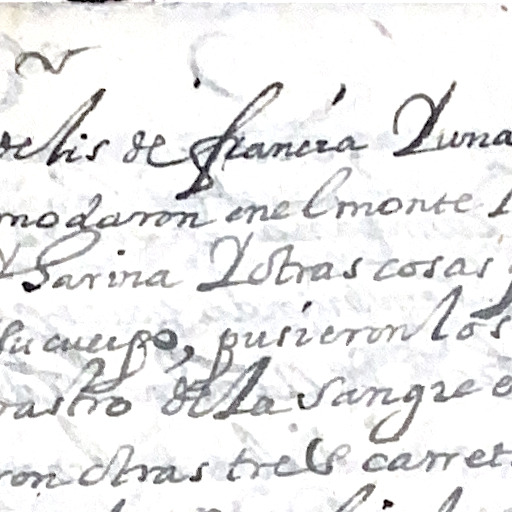 de lis de francia Y una
modaron en el monte
Harina Y otras cosas
su cuerpo, pusieron los
rastro de la sangre e
ron otras tres carret